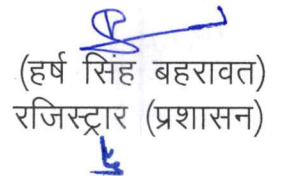 (हर्ष सिंह बहरावत)
रजिस्ट्रार (प्रशासन)